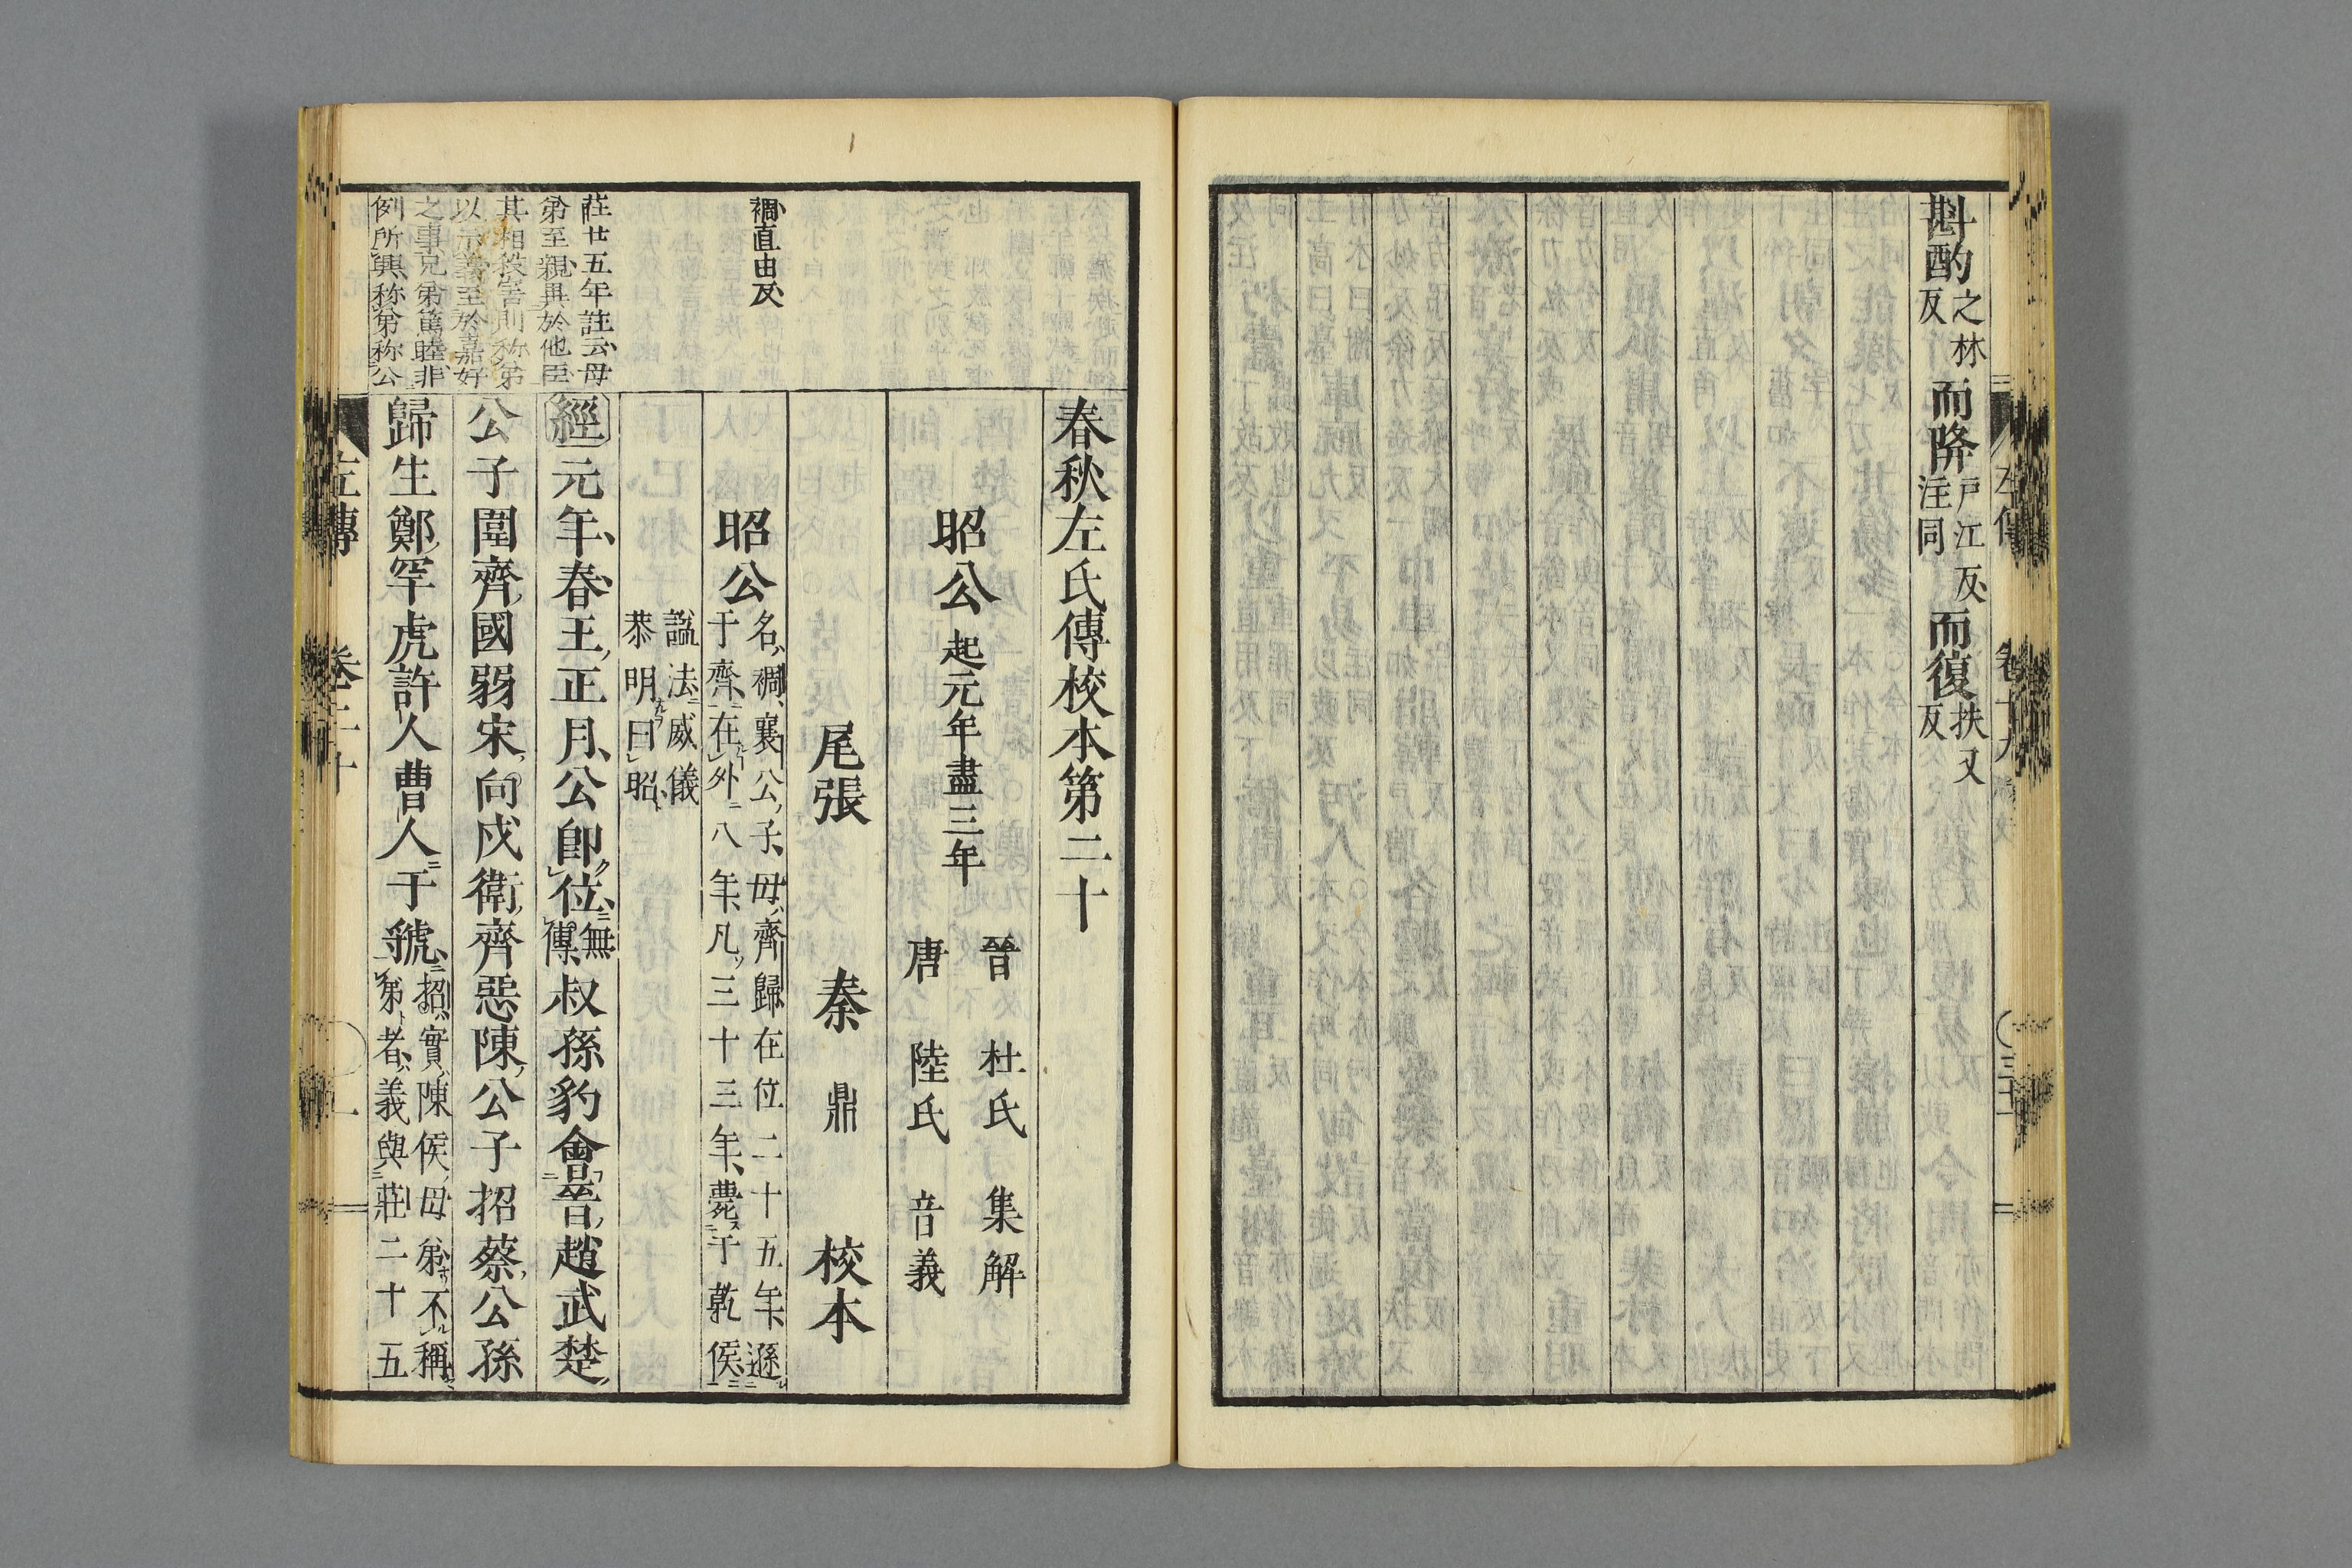 斟酌之林反而降戸江反注同而復扶又反
春秋左氏傳校本第二十
昭公起元年盡三年
晉 杜氏 集解
唐 陸氏 音義
尾張 秦 鼎 校本
昭公名裯襄公子母齊歸在位二十五年遜于齊在外八年凡三十三年薨于乾侯
諡法威儀恭明曰昭
經元年春王正月公卽位無傳叔孫豹會晉趙武楚
公子圍齊國弱宋向戌衛齊惡陳公子招蔡公孫
歸生鄭罕虎許人曹人于虢招實陳侯母弟不稱弟者義與莊二十五
裯直由反
莊廿五年註云母
弟至親異於他臣
其相殺害則称弟
以示義至於嘉好
之事兄弟篤睦非
例所興称弟称公
左傳 卷二十 一
左傳 卷十九